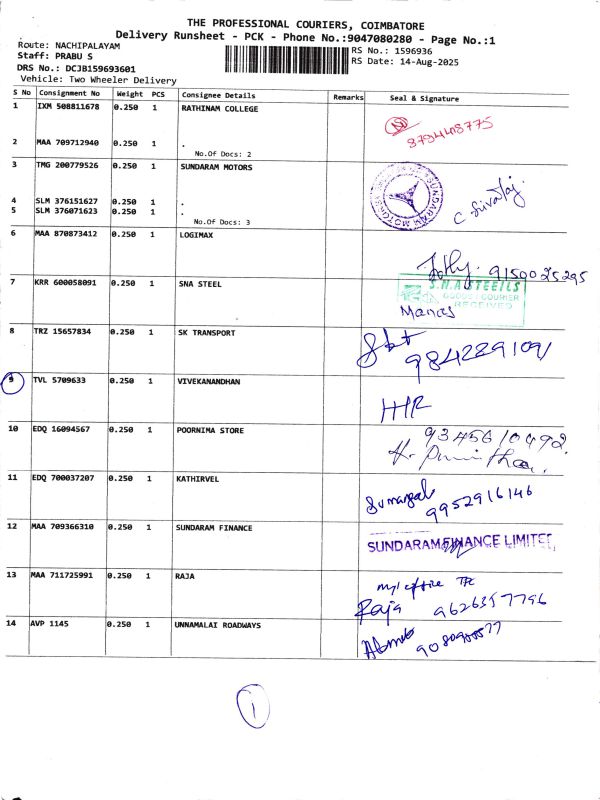 THE PROFESSIONAL COURIERS, COIMBATORE
Delivery Runsheet - PCK - Phone No.:9047080280 - Page No.:1
Route: NACHIPALAYAM
RS No.: 1596936
Staff: PRABU S
RS Date: 14-Aug-2025
DRS No.: DCJB159693601
Vehicle: Two Wheeler Delivery
S No Consignment No Weight PCS Consignee Details Remarks Seal & Signature
1 IXM 508811678 0.250 1 RATHINAM COLLEGE
2 MAA 709712940 0.250 1 .
No.Of Docs: 2
3 TMG 200779526 0.250 1 SUNDARAM MOTORS
SUNDARAM MOTORS
4 SLM 376151627 0.250 1 .
5 SLM 376071623 0.250 1 .
No.Of Docs: 3
6 MAA 870873412 0.250 1 LOGIMAX
9150025295
7 KRR 600058091 0.250 1 SNA STEEL
S.N.A STEEILS
GOODS / COURIER
RECEIVED
8 TRZ 15657834 0.250 1 SK TRANSPORT
9842289109
9 TVL 5709633 0.250 1 VIVEKANANDHAN
10 EDQ 16094567 0.250 1 POORNIMA STORE
9345610492
11 EDQ 700037207 0.250 1 KATHIRVEL
9952916146
12 MAA 709366310 0.250 1 SUNDARAM FINANCE
SUNDARAM FINANCE LIMITED
13 MAA 711725991 0.250 1 RAJA
Raja 9626357796
14 AVP 1145 0.250 1 UNNAMALAI ROADWAYS
1